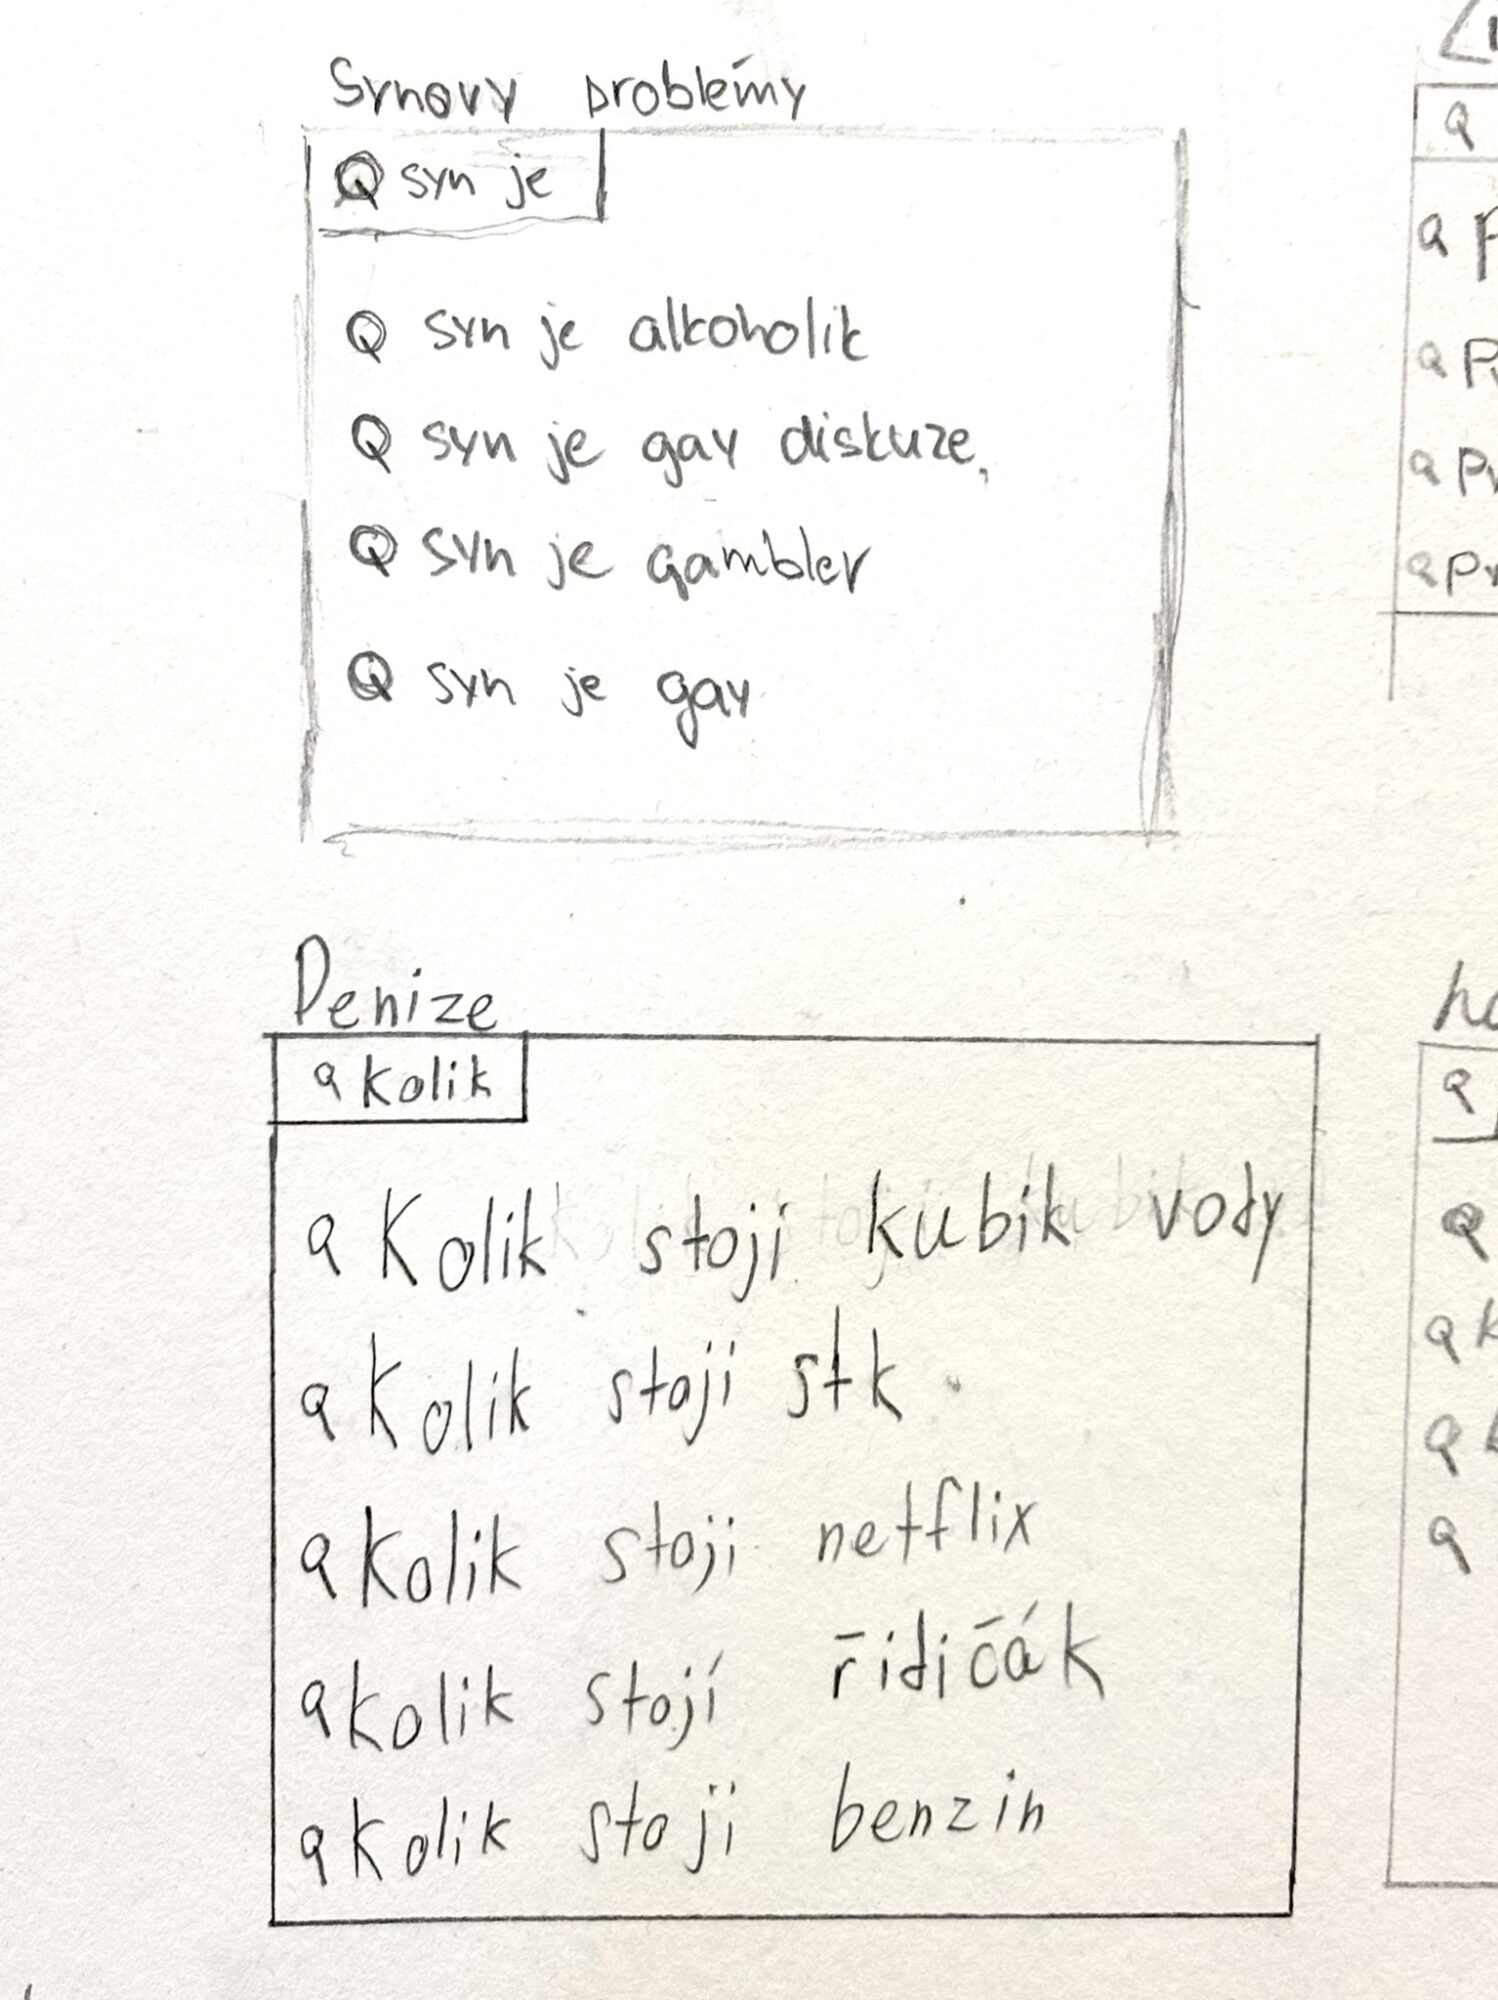 Synovy problémy
Q syn je
Q syn je alkoholik
Q syn je gay diskuze,
Q syn je gambler
Q syn je gay
Denize
Q kolik
Q Kolik stoji kubik vody
Q Kolik stoji stk
Q Kolik stoji netflix
Q kolik stojí řidičák
Q Kolik stoji benzin